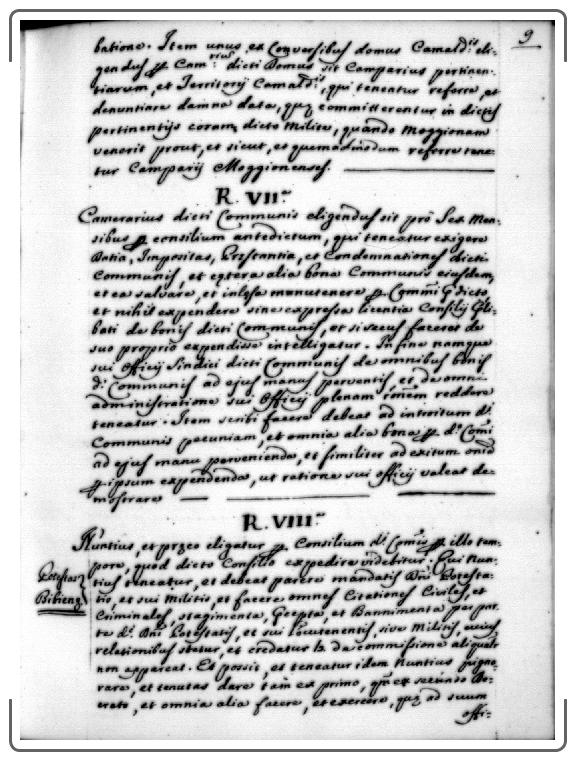 9
batione. Item unus ex Conversibus domus Camald:is eli-
gendus p Cam:rius dicti Domus sit Camparius pertinen-
tiarum, et Territorij Camald:is, qui teneatur referre, et
denuntiare damna data, quę committerentur in dictis
pertinentijs coram dicto Milite, quando Moggionam
venerit prout, et sicut, et quemadmodum referre tene-
tur Camparij Moggionenses.
R. VII.
Camerarius dicti Communis eligendus sit pro Sex Men-
sibus p consilium antedictum, qui teneatur exigere
Datia, Impositas, Pręstantia, et Condemnationes dicti
Communis, et cętera alia bona Communis eiusdem,
et ea salvare, et inlęsa manutenere p Comm:i pdicto,
et nihil expendere sine expressa licentia Consilij
bati de bonis dicti Communis, et si secus faceret de
suo proprio expendisse intelligatur. In fine namque
sui Officij Sindici dicti Communis de omnibus bonis
d:i Communis ad ejus manus perventis, et de omni
administratione sui Officij plenam rõnem reddere
teneatur. Item scribi facere debeat ad introitum d:i
Communis pecuniam, et omnia alia bona p d:o Comi
ad ejus manu pervenienda, et similiter ad exitum omd
p ipsum expendenda, ut ratione sui officij valeat de-
mostrare
R. VIII.
Nuntius, et pręco eligatur p Consilium d:i Com:is p illo tem-
pore, quod dicto Consilio expedire videbitur. Qui Nun-
tius teneatur, et debeat parere mandatis Dni Potesta-
Potestas
Bibienę
tis, et sui Militis, et facere omnes Citationes Civiles, et
Criminales, stagimenta, Pręcepta, et Bannimenta pro par-
te d:i Dni Potestatis, et sui locutenentis, sive Militis, cuius
relationibus stetur, et credatur de commissione aliqualr
non appareat. Et possit, et teneatur idem Nuntius pigno-
rare, et tenutas dare tam ex primo, qm ex secundo De-
creto, et omnia alia facere, et exercere, quę ad suum
offi-